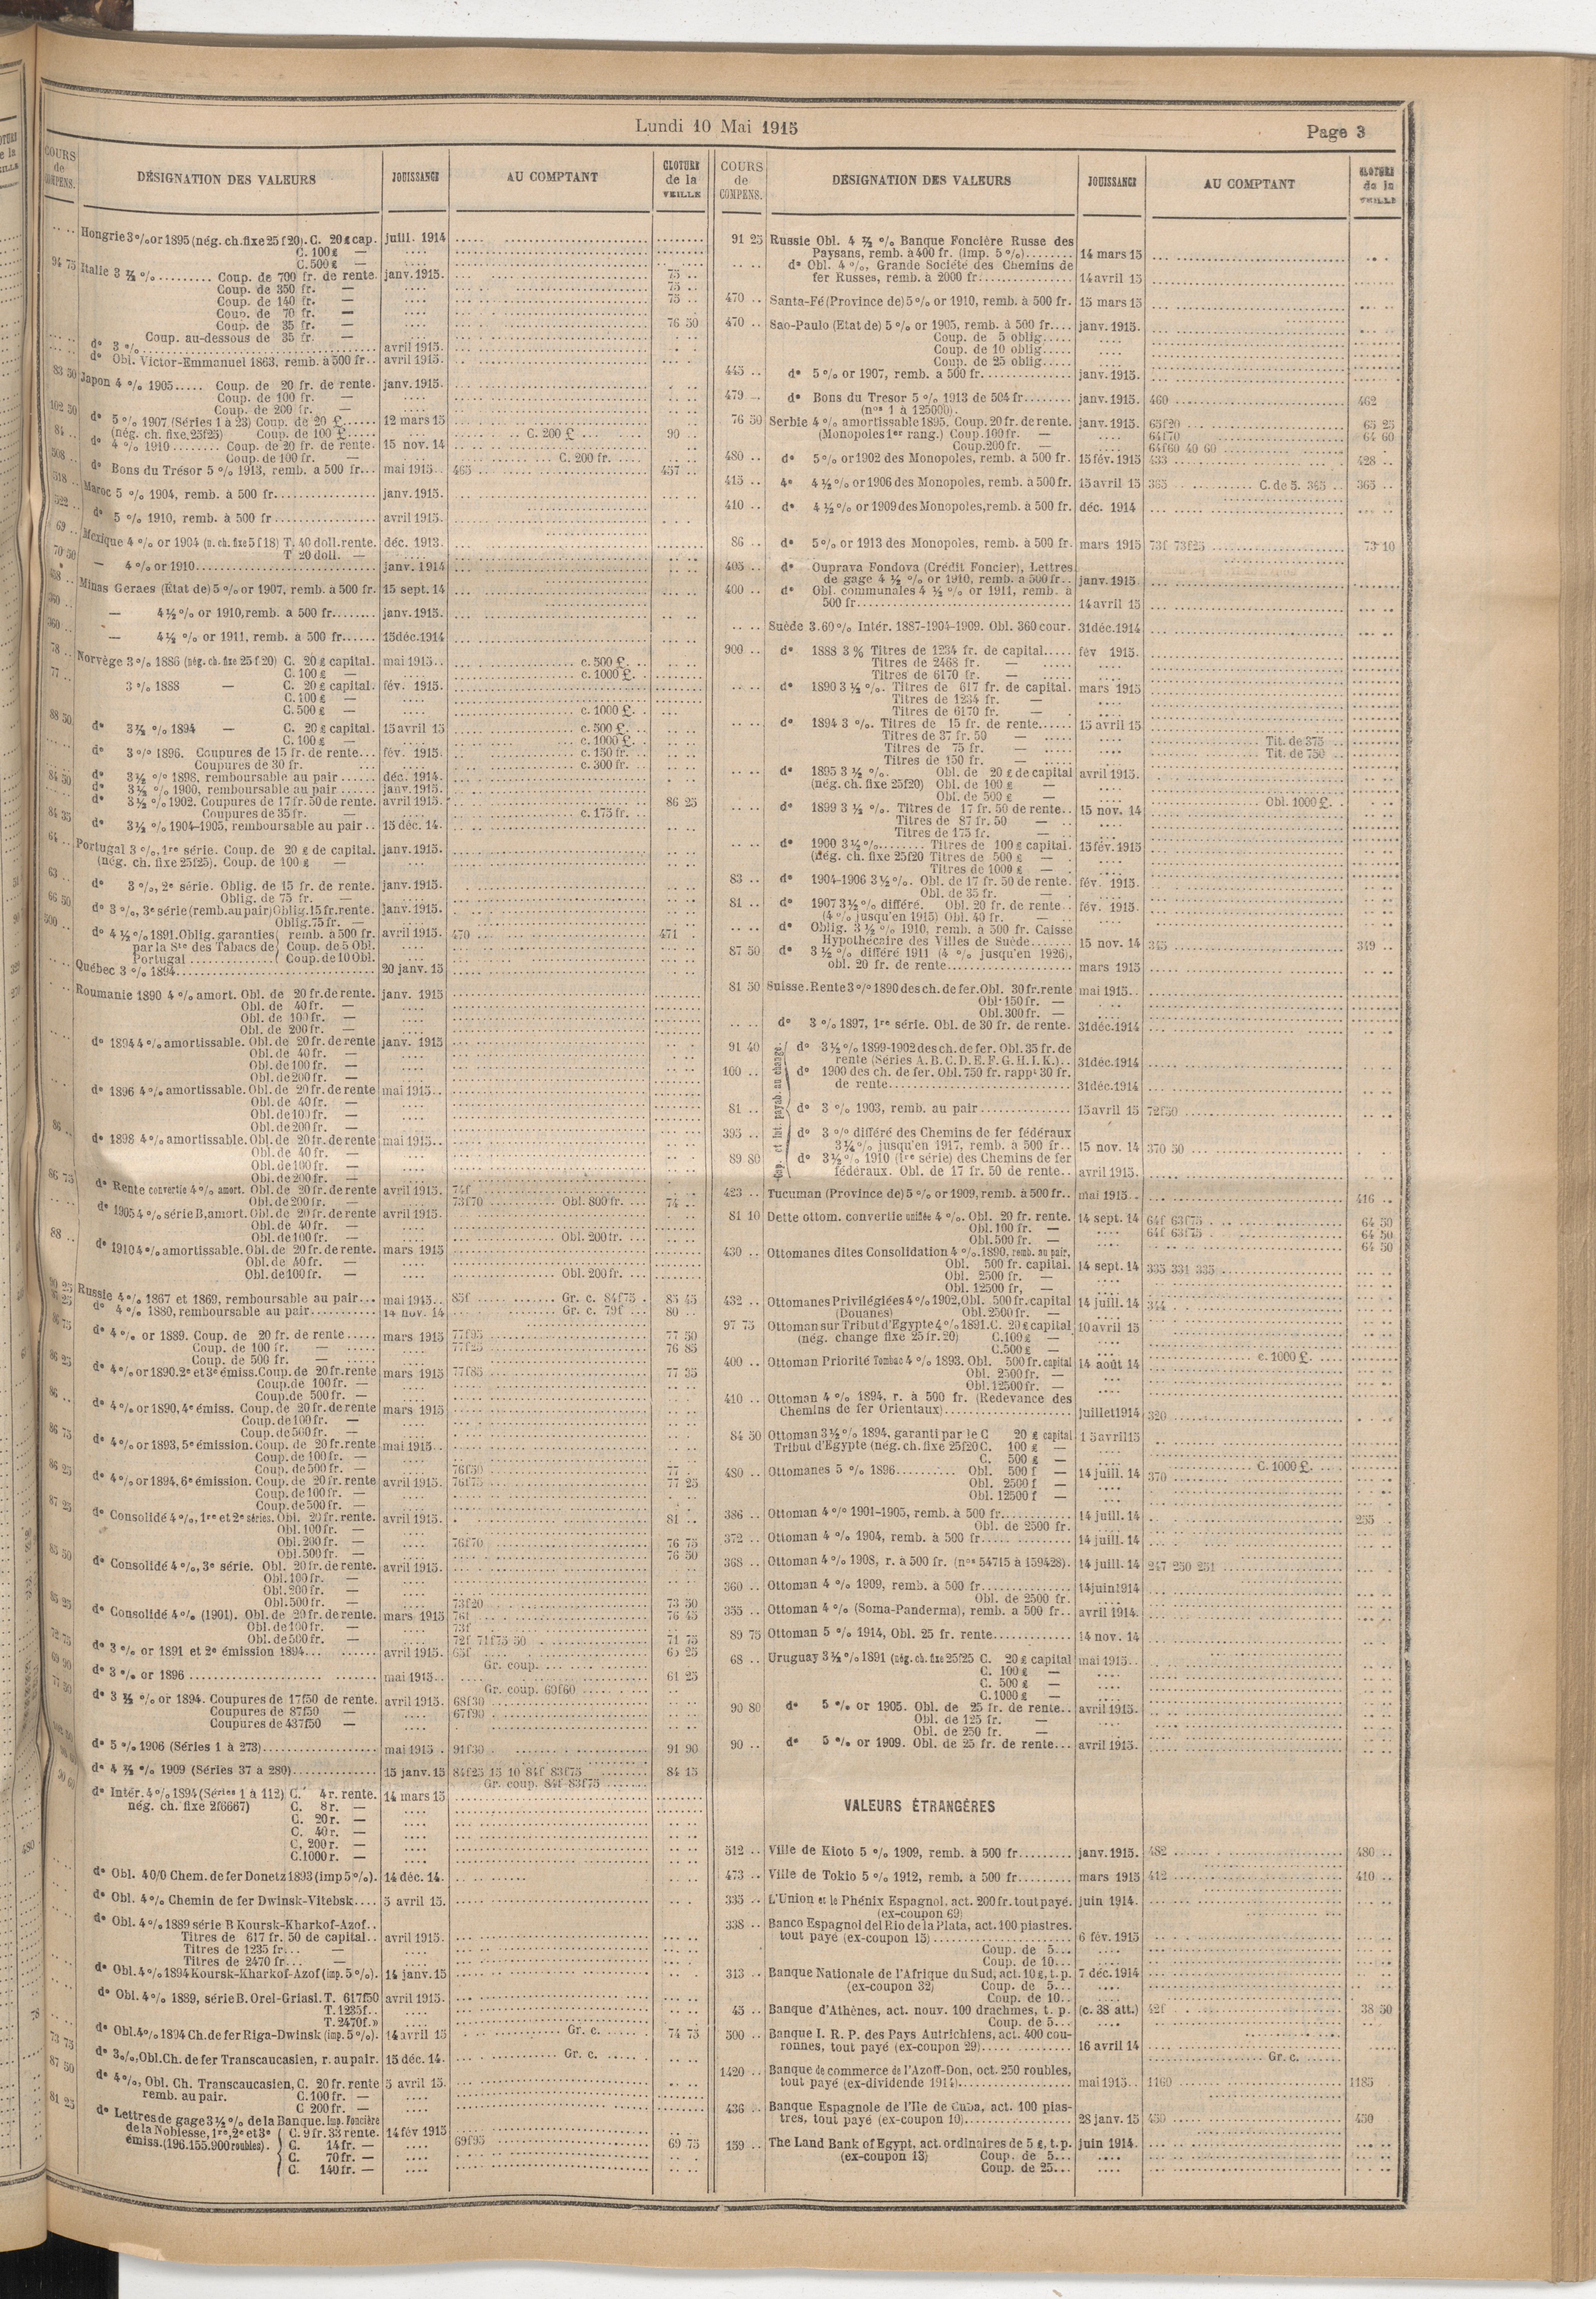 Lundi 10 Mai 1915
Page 3
COURS de COMPENS.
DÉSIGNATION DES VALEURS
JOUISSANCE
AU COMPTANT
CLOTURE de la VEILLE
Hongrie 3 % or 1895 (nég. ch. fixe 25 f 20). C. 20 £ cap. juill. 1914
C. 100 £ —
C. 500 £ —
94 75 Italie 3 ½ %......... Coup. de 700 fr. de rente. janv. 1915. 75 ..
Coup. de 350 fr. — 75 ..
Coup. de 140 fr. — 75 ..
Coup. de 70 fr. —
Coup. de 35 fr. — 76 50
Coup. au-dessous de 35 fr. —
d° 3 % avril 1915.
d° Obl. Victor-Emmanuel 1863, remb. à 500 fr.. avril 1915.
83 50 Japon 4 % 1905..... Coup. de 20 fr. de rente. janv. 1915.
Coup. de 100 fr. —
Coup. de 200 fr. —
102 50 d° 5 % 1907 (Séries 1 à 23) Coup. de 20 £..... 12 mars 15
(nég. ch. fixe 25f25) Coup. de 100 £..... C. 200 £ 90 ..
84 .. d° 4 % 1910........ Coup. de 20 fr. de rente. 15 nov. 14
Coup. de 100 fr. — C. 200 fr.
508 .. d° Bons du Trésor 5 % 1913, remb. à 500 fr... mai 1915.. 465 457 ..
518 .. Maroc 5 % 1904, remb. à 500 fr. janv. 1915.
522 .. d° 5 % 1910, remb. à 500 fr avril 1915.
69 .. Mexique 4 % or 1904 (n. ch. fixe 5 f 18) T. 40 doll. rente. déc. 1913.
T. 20 doll. —
70 50 — 4 % or 1910 janv. 1914
Minas Geraes (État de) 5 % or 1907, remb. à 500 fr. 15 sept. 14
360 .. — 4 ½ % or 1910, remb. à 500 fr........ janv. 1915.
360 .. — 4 ½ % or 1911, remb. à 500 fr...... 15 déc. 1914
78 .. Norvège 3 % 1886 (nég. ch. fixe 25 f 20) C. 20 £ capital. mai 1915.. c. 500 £.
C. 100 £ — c. 1000 £.
77 .. 3 % 1888 — C. 20 £ capital. fév. 1915.
C. 100 £ —
C. 500 £ — c. 1000 £.
88 50 d° 3 ½ % 1894 — C. 20 £ capital. 15 avril 15 c. 500 £.
C. 100 £ — c. 1000 £.
d° 3 % 1896. Coupures de 15 fr. de rente... fév. 1915. c. 150 fr.
Coupures de 30 fr. c. 300 fr.
84 50 d° 3 ½ % 1898, remboursable au pair...... déc. 1914.
d° 3 ½ % 1900, remboursable au pair...... janv. 1915.
d° 3 ½ % 1902. Coupures de 17 fr. 50 de rente. avril 1915. 86 25
Coupures de 35 fr. — c. 175 fr.
84 35 d° 3 ½ % 1904-1905, remboursable au pair.. 15 déc. 14.
64 .. Portugal 3 %, 1re série. Coup. de 20 £ de capital. janv. 1915.
(nég. ch. fixe 25f25). Coup. de 100 £ —
63 .. d° 3 %, 2e série. Oblig. de 15 fr. de rente. janv. 1915.
Oblig. de 75 fr. —
66 50 d° 3 %, 3e série (remb. au pair) Oblig. 15 fr. rente. janv. 1915.
Oblig. 75 fr. —
500 .. d° 4 ½ % 1891. Oblig. garanties remb. à 500 fr. avril 1915. 470 471
par la Sté des Tabacs de Coup. de 5 Obl.
Portugal Coup. de 10 Obl.
Québec 3 % 1894 20 janv. 15
Roumanie 1890 4 % amort. Obl. de 20 fr. de rente. janv. 1915
Obl. de 40 fr. —
Obl. de 100 fr. —
Obl. de 200 fr. —
d° 1894 4 % amortissable. Obl. de 20 fr. de rente janv. 1915
Obl. de 40 fr. —
Obl. de 100 fr. —
Obl. de 200 fr. —
d° 1896 4 % amortissable. Obl. de 20 fr. de rente mai 1915..
Obl. de 40 fr. —
Obl. de 100 fr. —
Obl. de 200 fr. —
86 .. d° 1898 4 % amortissable. Obl. de 20 fr. de rente mai 1915..
Obl. de 40 fr. —
Obl. de 100 fr. —
Obl. de 200 fr. —
86 75 d° Rente convertie 4 % amort. Obl. de 20 fr. de rente avril 1915. 74f
Obl. de 200 fr. — 73f70 Obl. 800 fr. 74 ..
d° 1905 4 % série B, amort. Obl. de 20 fr. de rente avril 1915.
Obl. de 40 fr. —
Obl. de 100 fr. — Obl. 200 fr.
88 .. d° 1910 4 % amortissable. Obl. de 20 fr. de rente. mars 1915
Obl. de 40 fr. —
Obl. de 100 fr. — Obl. 200 fr.
Russie 4 % 1867 et 1869, remboursable au pair... mai 1915.. 85f Gr. c. 84f75 85 45
d° 4 % 1880, remboursable au pair 14 nov. 14 Gr. c. 79f 80 ..
86 75 d° 4 % or 1889. Coup. de 20 fr. de rente..... mars 1915 77f95 77 50
Coup. de 100 fr. — 77f25 76 85
Coup. de 500 fr. —
86 25 d° 4 % or 1890. 2e et 3e émiss. Coup. de 20 fr. rente mars 1915 77f85 77 35
Coup. de 100 fr. —
Coup. de 500 fr. —
86 .. d° 4 % or 1890, 4e émiss. Coup. de 20 fr. de rente mars 1915
Coup. de 100 fr. —
Coup. de 500 fr. —
86 75 d° 4 % or 1893, 5e émission. Coup. de 20 fr. rente mai 1915..
Coup. de 100 fr. —
Coup. de 500 fr. — 76f50 77
86 25 d° 4 % or 1894, 6e émission. Coup. de 20 fr. rente avril 1915. 76f75 77 25
Coup. de 100 fr. —
Coup. de 500 fr. —
87 25 d° Consolidé 4 %, 1re et 2e séries. Obl. 20 fr. rente. avril 1915. 81 ..
Obl. 100 fr. —
Obl. 200 fr. — 76f70 76 75
Obl. 500 fr. — 76 50
85 50 d° Consolidé 4 %, 3e série. Obl. 20 fr. de rente. avril 1915.
Obl. 100 fr. —
Obl. 200 fr. —
Obl. 500 fr. — 73f20 73 50
85 25 d° Consolidé 4 % (1901). Obl. de 20 fr. de rente. mars 1915 76f 76 45
Obl. de 100 fr. — 73f
Obl. de 500 fr. — 72f 71f75 50 71 75
72 75 d° 3 % or 1891 et 2e émission 1894 avril 1915. 65f 65 25
Gr. coup.
69 90 d° 3 % or 1896 mai 1915.. 61 25
Gr. coup. 60f60
77 50 d° 3 ½ % or 1894. Coupures de 17f50 de rente. avril 1915. 68f30
Coupures de 87f50 — 67f90
Coupures de 437f50 —
d° 5 % 1906 (Séries 1 à 273) mai 1915 91f30 91 90
d° 4 ½ % 1909 (Séries 37 à 280) 15 janv. 15 84f25 15 10 84f 83f75 84 15
Gr. coup. 84f 83f75
d° Intér. 4 % 1894 (Séries 1 à 112) C. 4 r. rente. 14 mars 15
nég. ch. fixe 2f6667) C. 8 r. —
C. 20 r. —
C. 40 r. —
C. 200 r. —
C. 1000 r. —
d° Obl. 40/0 Chem. de fer Donetz 1893 (imp 5 %). 14 déc. 14.
d° Obl. 4 % Chemin de fer Dwinsk-Vitebsk.... 5 avril 15.
d° Obl. 4 % 1889 série B Koursk-Kharkof-Azof..
Titres de 617 fr. 50 de capital.. avril 1915.
Titres de 1235 fr... —
Titres de 2470 fr... —
d° Obl. 4 % 1894 Koursk-Kharkof-Azof (imp. 5 %). 14 janv. 15
d° Obl. 4 % 1889, série B. Orel-Griasi. T. 617f50 avril 1915.
T. 1235f..
T. 2470f.»
73 75 d° Obl. 4 % 1894 Ch. de fer Riga-Dwinsk (imp. 5 %). 14 avril 15 Gr. c. 74 75
87 50 d° 3 %, Obl. Ch. de fer Transcaucasien, r. au pair. 15 déc. 14. Gr. c.
d° 4 %, Obl. Ch. Transcaucasien, C. 20 fr. rente 5 avril 15.
remb. au pair. C. 100 fr. —
C 200 fr. —
81 25 d° Lettres de gage 3 ½ % de la Banque. Imp. Foncière
de la Noblesse, 1re, 2e et 3e C. 9 fr. 33 rente. 14 fév 1915
émiss. (196.155.900 roubles). C. 14 fr. — 69f95 69 75
C. 70 fr. —
C. 140 fr. —
COURS de COMPENS.
DÉSIGNATION DES VALEURS
JOUISSANCE
AU COMPTANT
CLOTURE de la VEILLE
91 25 Russie Obl. 4 ½ % Banque Foncière Russe des
Paysans, remb. à 400 fr. (imp. 5 %)........ 14 mars 15
d° Obl. 4 %, Grande Société des Chemins de
fer Russes, remb. à 2000 fr. 14 avril 15
470 .. Santa-Fé (Province de) 5 % or 1910, remb. à 500 fr. 15 mars 15
470 .. Sao-Paulo (Etat de) 5 % or 1905, remb. à 500 fr.... janv. 1915.
Coup. de 5 oblig.....
Coup. de 10 oblig.....
Coup. de 25 oblig.....
445 .. d° 5 % or 1907, remb. à 500 fr. janv. 1915.
479 .. d° Bons du Tresor 5 % 1913 de 504 fr........ janv. 1915. 460 462
(nos 1 à 125000).
76 50 Serbie 4 % amortissable 1895. Coup. 20 fr. de rente. janv. 1915. 65f20 65 25
(Monopoles 1er rang.) Coup. 100 fr. — 64f70 64 60
Coup. 200 fr. — 64f60 40 60
480 .. d° 5 % or 1902 des Monopoles, remb. à 500 fr. 15 fév. 1915 433 428 ..
415 .. d° 4 ½ % or 1906 des Monopoles, remb. à 500 fr. 15 avril 15 365 C. de 5. 365 365 ..
410 .. d° 4 ½ % or 1909 des Monopoles, remb. à 500 fr. déc. 1914
86 .. d° 5 % or 1913 des Monopoles, remb. à 500 fr. mars 1915 73f 73f25 73 10
405 .. d° Ouprava Fondova (Crédit Foncier), Lettres
de gage 4 ½ % or 1910, remb. à 500 fr.. janv. 1915
400 .. d° Obl. communales 4 ½ % or 1911, remb. à
500 fr. 14 avril 15
Suède 3.60 % Intér. 1887-1904-1909. Obl. 360 cour. 31 déc. 1914
900 .. d° 1888 3 % Titres de 1234 fr. de capital..... fév 1915.
Titres de 2468 fr. —
Titres de 6170 fr. —
d° 1890 3 ½ %. Titres de 617 fr. de capital. mars 1915
Titres de 1234 fr. —
Titres de 6170 fr. —
d° 1894 3 %. Titres de 15 fr. de rente...... 15 avril 15
Titres de 37 fr. 50 — Tit. de 375
Titres de 75 fr. — Tit. de 750
Titres de 150 fr. —
d° 1895 3 ½ %. Obl. de 20 £ de capital avril 1915.
(nég. ch. fixe 25f20) Obl. de 100 £ —
Obl. de 500 £ — Obl. 1000 £.
d° 1899 3 ½ %. Titres de 17 fr. 50 de rente.. 15 nov. 14
Titres de 87 fr. 50 —
Titres de 175 fr. —
d° 1900 3 ½ %........ Titres de 100 £ capital. 15 fév. 1915
(nég. ch. fixe 25f20 Titres de 500 £ —
Titres de 1000 £ —
83 .. d° 1904-1906 3 ½ %. Obl. de 17 fr. 50 de rente. fév. 1915.
Obl. de 35 fr. —
81 .. d° 1907 3 ½ % différé. Obl. 20 fr. de rente.. fév. 1915.
(4 % jusqu'en 1915) Obl. 40 fr. —
d° Oblig. 3 ½ % 1910, remb. à 500 fr. Caisse
Hypothécaire des Villes de Suède....... 15 nov. 14 345 349 ..
87 50 d° 3 ½ % différé 1911 (4 % jusqu'en 1926),
obl. 20 fr. de rente mars 1915
81 50 Suisse. Rente 3 % 1890 des ch. de fer. Obl. 30 fr. rente mai 1915..
Obl. 150 fr. —
Obl. 300 fr. —
d° 3 % 1897, 1re série. Obl. de 30 fr. de rente. 31 déc. 1914
Cap. et int. payab. au change.
91 40 d° 3 ½ % 1899-1902 des ch. de fer. Obl. 35 fr. de
rente (Séries A.B.C.D.E.F.G.H.I.K.).. 31 déc. 1914
100 .. d° 1900 des ch. de fer. Obl. 750 fr. rappt 30 fr.
de rente 31 déc. 1914
81 .. d° 3 % 1903, remb. au pair 15 avril 15 72f50
395 .. d° 3 % différé des Chemins de fer fédéraux
3 ¼ % jusqu'en 1917, remb. à 500 fr.. 15 nov. 14 370 50
89 80 d° 3 ½ % 1910 (1re série) des Chemins de fer
fédéraux. Obl. de 17 fr. 50 de rente.. avril 1915.
423 .. Tucuman (Province de) 5 % or 1909, remb. à 500 fr.. mai 1915.. 416 ..
81 10 Dette ottom. convertie unifiée 4 %. Obl. 20 fr. rente. 14 sept. 14 64f 63f75 64 50
Obl. 100 fr. — 64f 63f75 64 50
Obl. 500 fr. — 64 50
430 .. Ottomanes dites Consolidation 4 %. 1890, remb. au pair.
Obl. 500 fr. capital. 14 sept. 14 335 331 335
Obl. 2500 fr. —
Obl. 12500 fr. —
432 .. Ottomanes Privilégiées 4 % 1902, Obl. 500 fr. capital 14 juill. 14 344
(Douanes) Obl. 2500 fr. —
97 75 Ottoman sur Tribut d'Egypte 4 % 1891. C. 20 £ capital 10 avril 15
(nég. change fixe 25 fr. 20) C. 100 £ —
C. 500 £ — c. 1000 £.
400 .. Ottoman Priorité Tombac 4 % 1893. Obl. 500 fr. capital 14 août 14
Obl. 2500 fr. —
Obl. 12500 fr. —
410 .. Ottoman 4 % 1894, r. à 500 fr. (Redevance des
Chemins de fer Orientaux) juillet 1914 320
84 50 Ottoman 3 ½ % 1894, garanti par le C 20 £ capital 15 avril 15
Tribut d'Egypte (nég. ch. fixe 25f20 C. 100 £ —
C. 500 £ — C. 1000 £.
480 .. Ottomanes 5 % 1896.......... Obl. 500 f — 14 juill. 14 370
Obl. 2500 f —
Obl. 12500 f —
386 .. Ottoman 4 % 1901-1905, remb. à 500 fr. 14 juill. 14 255
Obl. de 2500 fr.
372 .. Ottoman 4 % 1904, remb. à 500 fr. 14 juill. 14
368 .. Ottoman 4 % 1908, r. à 500 fr. (nos 54715 à 159428). 14 juill. 14 247 250 251
360 .. Ottoman 4 % 1909, remb. à 500 fr. 14 juin 1914
Obl. de 2500 fr.
355 .. Ottoman 4 % (Soma-Panderma), remb. à 500 fr.. avril 1914.
89 75 Ottoman 5 % 1914, Obl. 25 fr. rente 14 nov. 14
68 .. Uruguay 3 ½ % 1891 (nég. ch. fixe 25f25 C. 20 £ capital mai 1915..
C. 100 £ —
C. 500 £ —
C. 1000 £ —
90 80 d° 5 % or 1905. Obl. de 25 fr. de rente.. avril 1915.
Obl. de 125 fr. —
Obl. de 250 fr. —
90 .. d° 5 % or 1909. Obl. de 25 fr. de rente... avril 1915.
VALEURS ÉTRANGÈRES
512 .. Ville de Kioto 5 % 1909, remb. à 500 fr......... janv. 1915. 482 480 ..
473 .. Ville de Tokio 5 % 1912, remb. à 500 fr......... mars 1915 412 410 ..
335 .. L'Union et le Phénix Espagnol, act. 200 fr. tout payé. juin 1914.
(ex-coupon 69)
338 .. Banco Espagnol del Rio de la Plata, act. 100 piastres.
tout payé (ex-coupon 15) 6 fév. 1915
Coup. de 5...
Coup. de 10...
313 .. Banque Nationale de l'Afrique du Sud, act. 10 £, t. p. 7 déc. 1914
(ex-coupon 32) Coup. de 5...
Coup. de 10..
45 .. Banque d'Athènes, act. nouv. 100 drachmes, t. p. (c. 38 att.) 42f 38 50
Coup. de 5...
500 .. Banque I. R. P. des Pays Autrichiens, act. 400 cou-
ronnes, tout payé (ex-coupon 29) 16 avril 14
Gr. c.
1420 .. Banque de commerce de l'Azoff-Don, oct. 250 roubles,
tout payé (ex-dividende 1914) mai 1915.. 1160 1185
436 .. Banque Espagnole de l'Ile de Cuba, act. 100 pias-
tres, tout payé (ex-coupon 10) 28 janv. 15 450 450
159 .. The Land Bank of Egypt, act. ordinaires de 5 £, t. p. juin 1914.
(ex-coupon 13) Coup. de 5...
Coup. de 25...